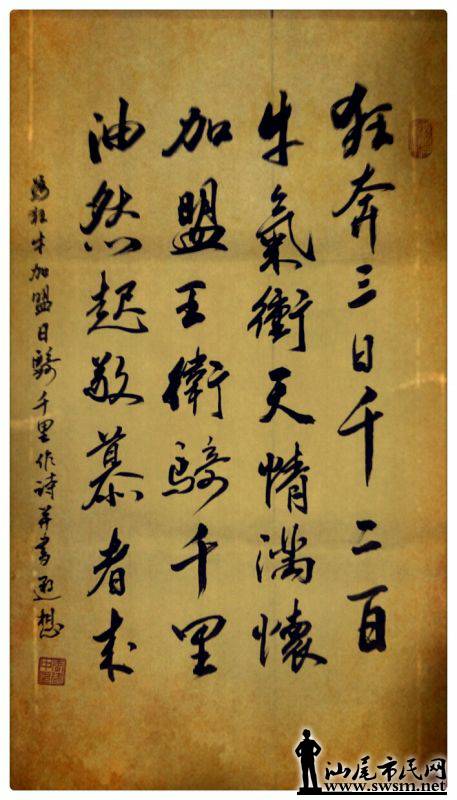 狂奔三日千二百
牛氣衝天情滿懷
加盟王衛騎千里
油然起敬慕者来
為狂牛加盟日騎千里作诗并書想
汕尾市民网
www.swsm.net